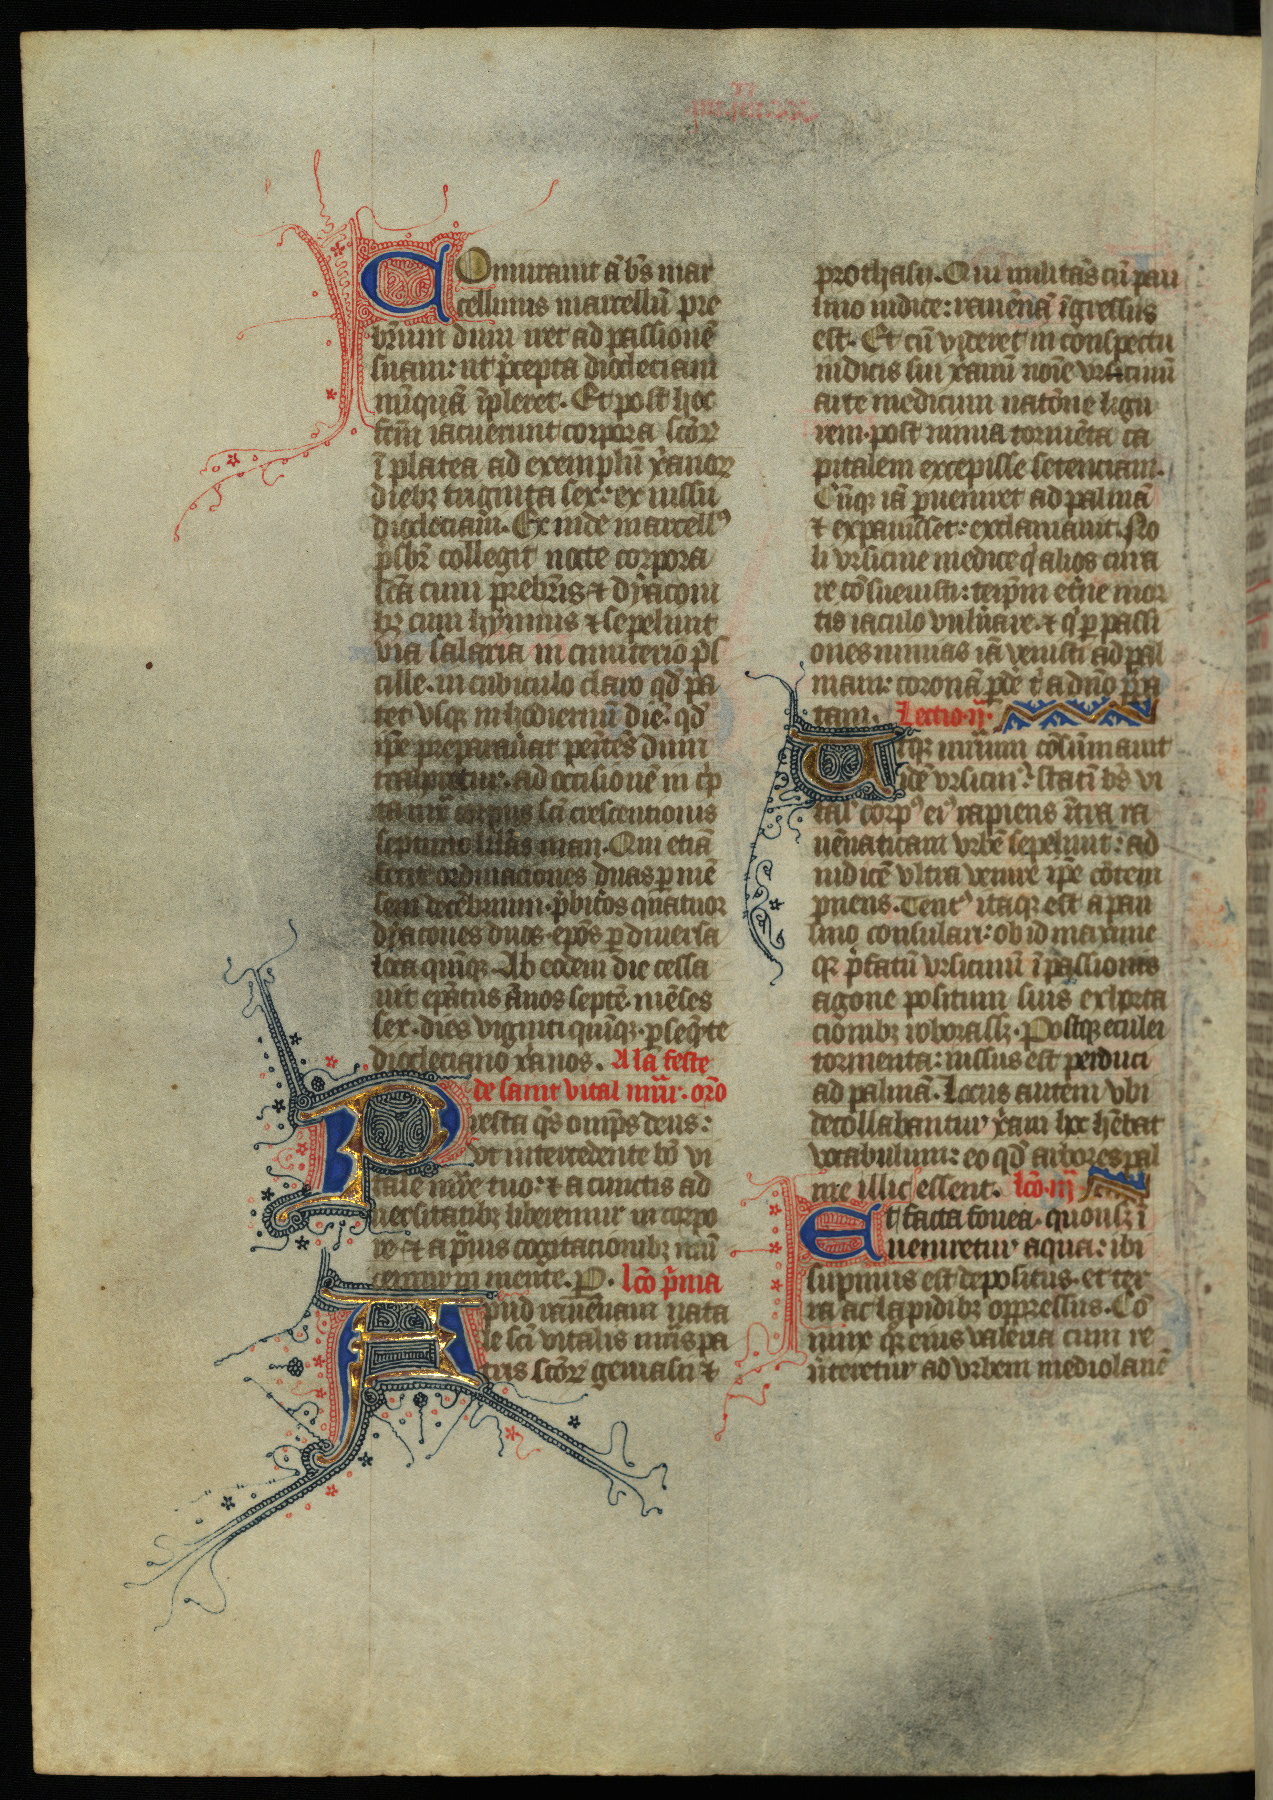 COniurauit ā b̄s mar
cellinus marcellū pre
b̄rum dum iret ad passionē
suam: ut p̄cepta diocleciani
nūquā īpleret. Et post hoc
fc̄m iacuerunt corpora sc̄oꝝ
ī platea ad exemplū xp̄anoꝝ
diebꝫ triginta sex: ex iussu
diocleciani. Ex inde marcellꝰ
p̄sbr̄ collegit nocte corpora
sc̄a cum p̄rebr̄is ⁊ dyaconi
bꝫ cum hymnis ⁊ sepeliunt
via salaria in cimiterio p̄s
cille. in cubiculo claro qd̄ pa
tet vsqꝫ in hodiernū diē. qd̄
ip̄e preparau̅at penitēs dum
traheretur ad occisionē in cp̄
ta iux̄ corpus sc̄i crescentionis
septimo kl̄as maii. Qui etiā
fecit ordinaciones duas p̱ mē
sem decēbrium. p̄sbit̄os quatuor
dyacones duos. ep̄os p̱ diuersa
loca quīqꝫ. Ab eodem die cessa
uit ep̄atus ānos septē. mēses
sex. dies viginti quīqꝫ. p̱seq̄nte
diocleciano xp̄anos. A la feste
de saint vital mr̄. or̄o
Presta q̄s om̄ps deus:
vt intercedente bō vi
tale mr̄e tuo: ⁊ a cunctis ad
uersitatibꝫ liberemur in corpo
re ⁊ a prauis cogitationibꝫ mū
demur in mente. P. Lc̄o p̄ma
Apud rauēnam nata
le sc̄i vitalis mr̄is pa
tris sc̄oꝝ geruasii ⁊
prothasii. Qui militās cū pau
lino iudice: rauēnā īgressus
est. Et cū videret in conspectu
iudicis sui xp̄anū noīe vrsicinū
arte medicum natōne ligu
rem. post nimia tormēta ca
pitalem excepisse setenciam.
Cūqꝫ iā ꝑueniret ad palmā
⁊ expauisset: exclamauit. No
li vrsicine medice q̄ alios cura
re cōsueuisti: teip̄m et̄ne mor
tis iaculo vuln̄are. ⁊ q̄ ꝑ passi
ones nimias iā venisti ad pal
mam: coronā ꝑde t̄ a dn̄o para
tam. Lectio. ij.
Atqꝫ mr̄ium cōsūmauit
idē vrsicinꝰ. statī bs̄ vi
tal̄ corpꝰ eiꝰ rapiens īt̄ra ra
uēnaticam vrbē sepeliuit: ad
iudicē vltra venire ip̄e cōtem
pnens. Tentꝰ itaqꝫ est a pau
lino consulari: ob id maxime
qꝫ p̄fatū vrsicinū ī passionis
agone positum suis exhorta
cionibꝫ roborassꝫ. Postqꝫ eculei
tormenta: iussus est perduci
ad palmā. Locus autem vbi
decollabantur xp̄ani hoc hēbat
vocabulum: eo qd̄ arbores pal
me illic essent. Lc̄o. iij
Et facta fouea. quousqꝫ ī
ueniretur aqua: ibi
supinus est depositus. et ter
ra ac lapidibꝫ opp̄ressus. Cō
niunx qꝫ eius valeria cum re
ūteretur ad vrbem mediolanē